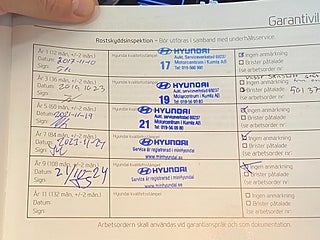 Garantivil
Rostskyddsinspektion - Bör utföras i samband med underhållsservice.
År 1 (12 mån, +/-2 mån.)
Datum:
Sign:
Hyundai kvalitetsstämpel
HYUNDAI
17
Aukt. Serviceverkstad 69237
Motorcentrum i Kumla AB
Tel 019-
Ingen anmärkning
Brister påtalade
(se arbetsorder nr:
År 3 (36 mån, +/-2 mån.)
Datum:
Sign:
Hyundai kvalitetsstämpel
HYUNDAI
19
Aukt. Serviceverkstad 69237
Motorcentrum i Kumla AB
Tel 019-
Ingen anmärkning
Brister påtalade
(se arbetsorder nr:
År 5 (60 mån, +/-2 mån.)
Datum:
Sign:
Hyundai kvalitetsstämpel
HYUNDAI
21
Aukt. Serviceverkstad 69237
Motorcentrum i Kumla AB
Tel 019-
Ingen anmärkning
Brister påtalade
(se arbetsorder nr:
År 7 (84 mån, +/-2 mån.)
Datum:
Sign:
Hyundai kvalitetsstämpel
HYUNDAI
Service är registrerad i minhyundai
www.minhyundai.se
Ingen anmärkning
Brister påtalade
(se arbetsorder nr:
År 9 (108 mån, +/-2 mån.)
Datum: 21/10-24
Sign:
Hyundai kvalitetsstämpel
HYUNDAI
Service är registrerad i minhyundai
www.minhyundai.se
Ingen anmärkning
Brister påtalade
(se arbetsorder nr:
År 11 (132 mån, +/-2 mån.)
Datum:
Sign:
Hyundai kvalitetsstämpel
Ingen anmärkning
Brister påtalade
(se arbetsorder nr:
Arbetsordern skall användas vid garantianspråk och som dokumentation.